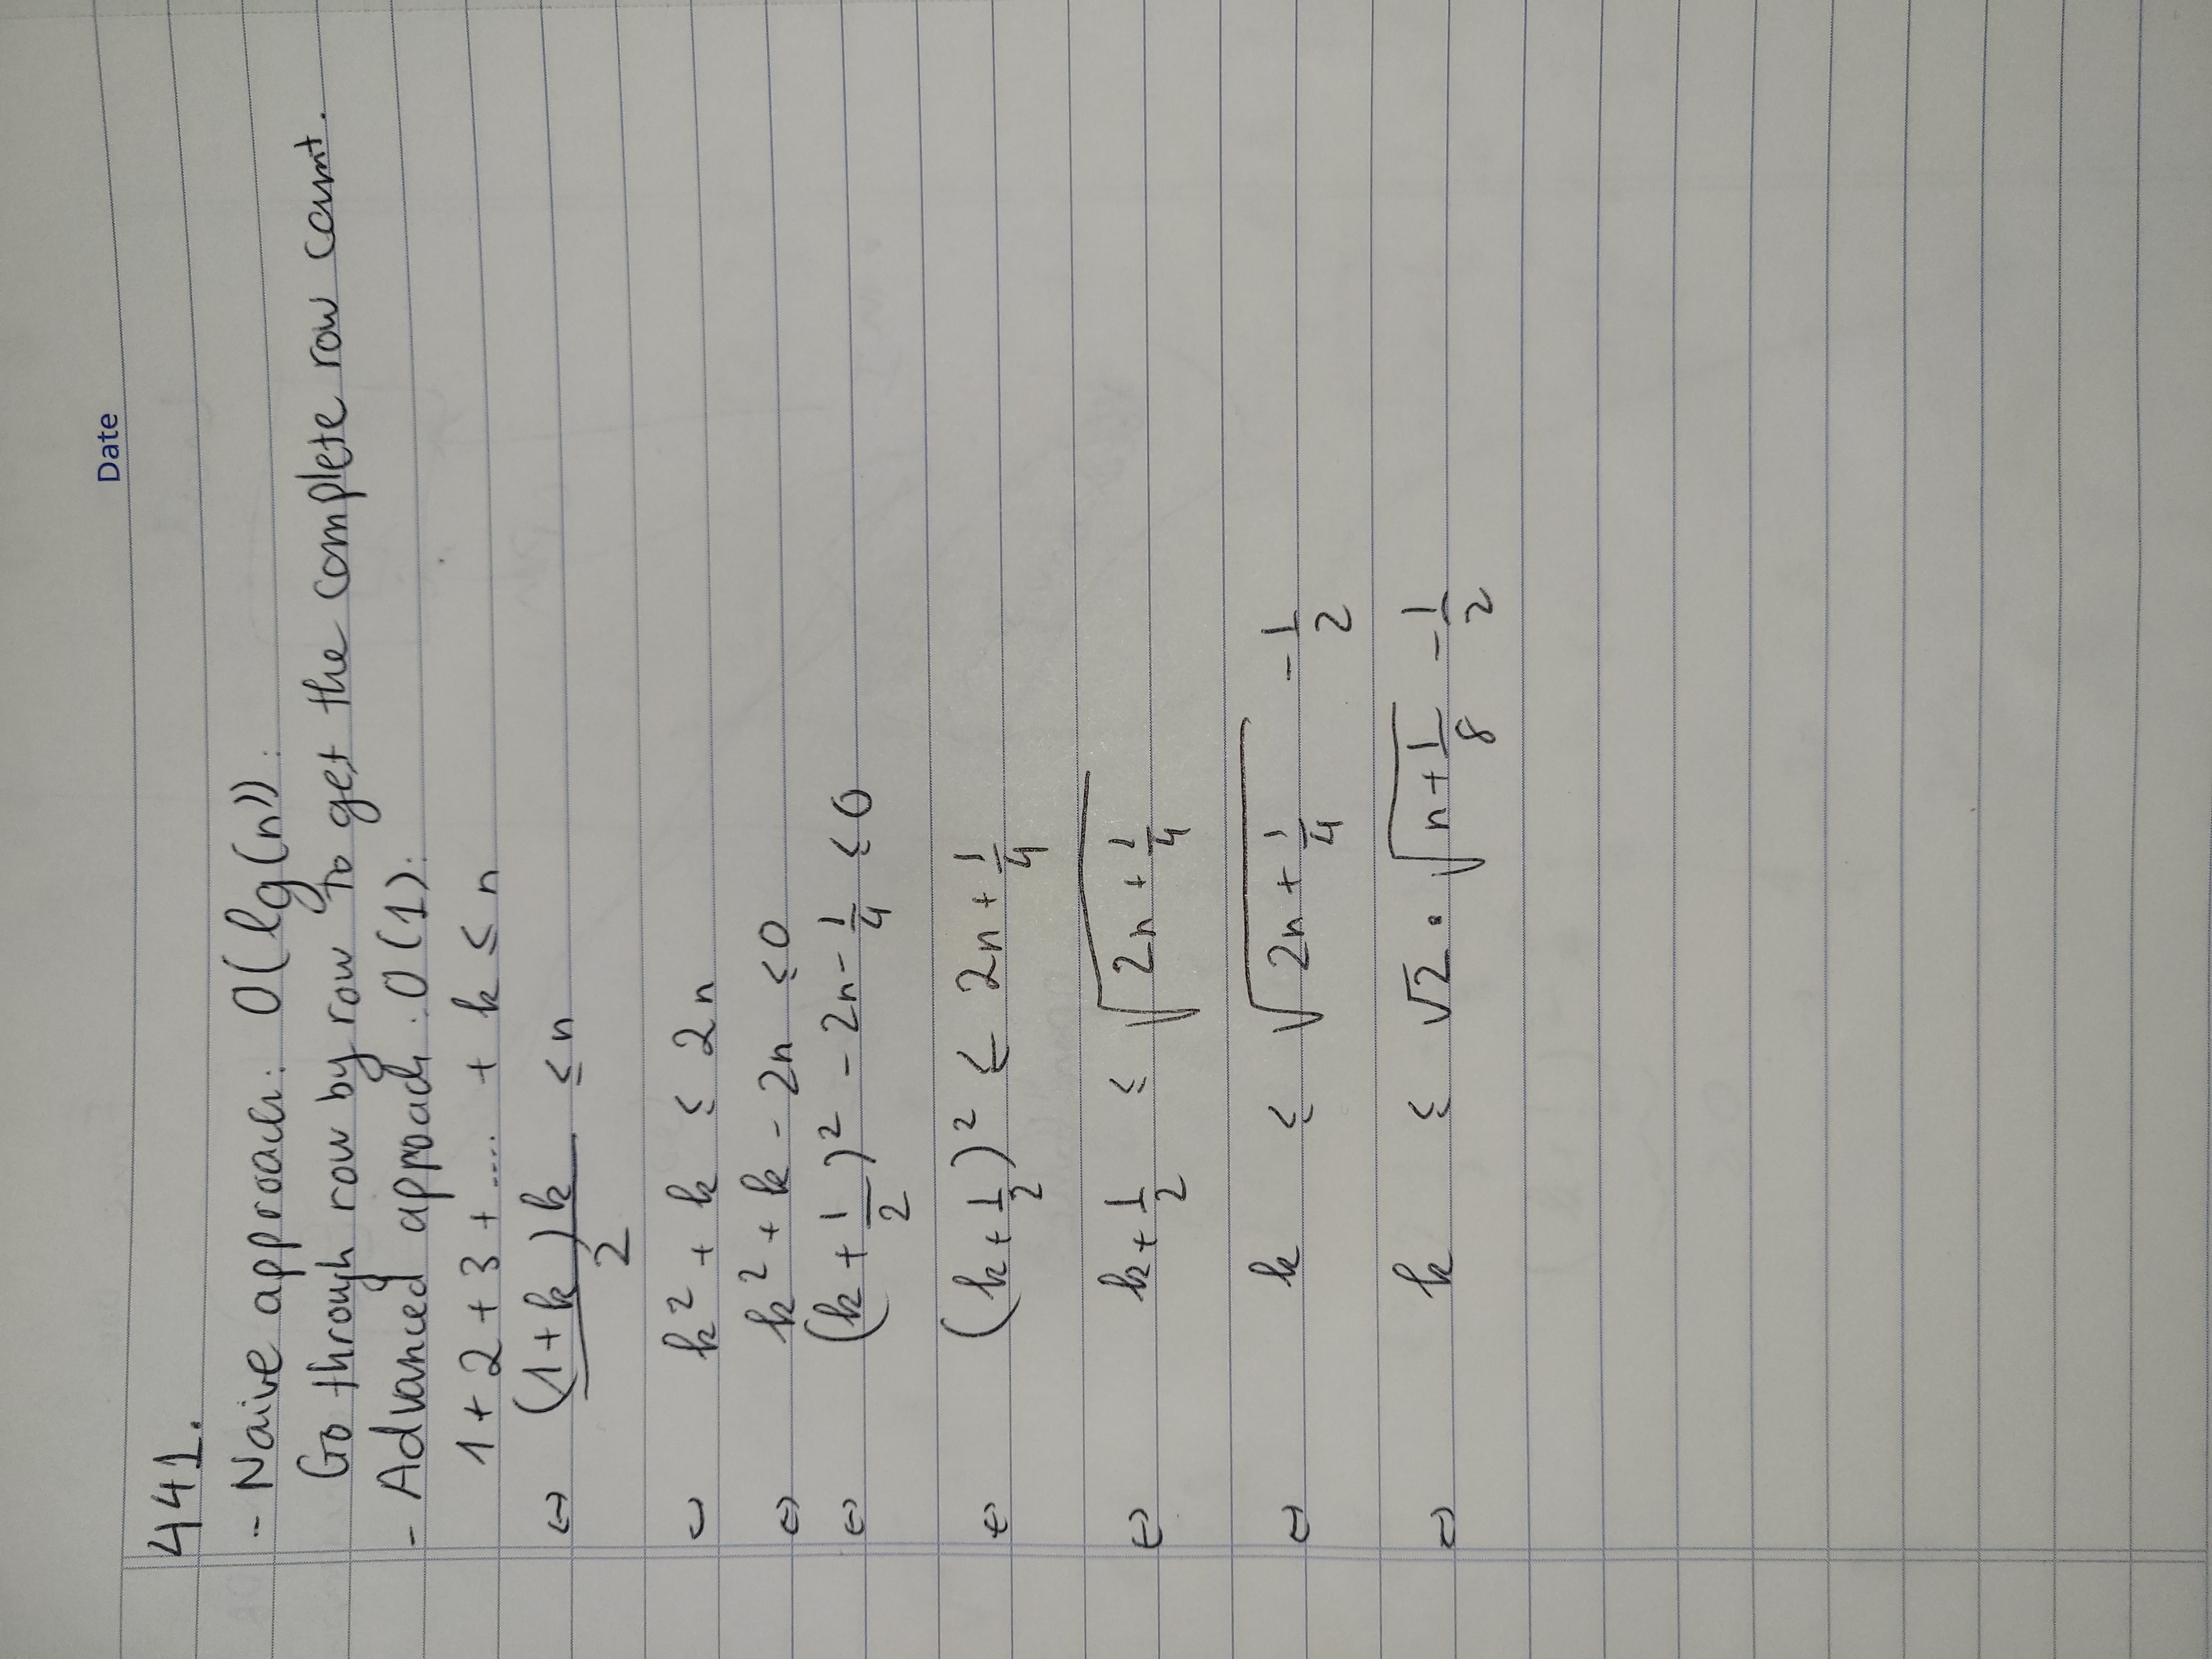 Date
441.
- Naive approach: O(lg(n)).
Go through row by row to get the complete row count.
- Advanced approach: O(1):
1 + 2 + 3 + .... + k ≤ n
⇔ (1+k)k / 2 ≤ n
⇔ k² + k ≤ 2n
⇔ k² + k - 2n ≤ 0
⇔ (k + 1/2)² - 2n - 1/4 ≤ 0
⇔ (k + 1/2)² ≤ 2n + 1/4
⇔ k + 1/2 ≤ √(2n + 1/4)
⇔ k ≤ √(2n + 1/4) - 1/2
⇔ k ≤ √2 . √(n + 1/8) - 1/2